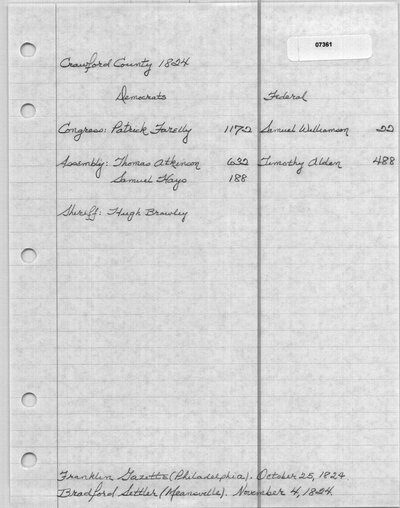 07361
Crawford County 1824
Democrats Federal
Congress: Patrick Farelly 1172 Samuel Williamson 22
Assembly: Thomas Atkinson 632 Timothy Alden 488
Samuel Hays 188
Sheriff: Hugh Brawley
Franklin Gazette (Philadelphia). October 25, 1824
Bradford Settler (Meansville). November 4, 1824.